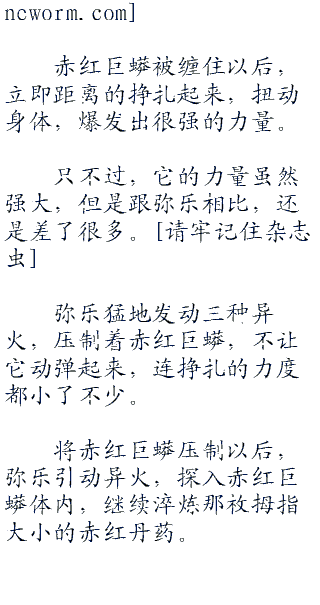 ncworm.com]
赤红巨蟒被缠住以后，
立即距离的挣扎起来，扭动
身体，爆发出很强的力量。
只不过，它的力量虽然
强大，但是跟弥乐相比，还
是差了很多。[请牢记住杂志
虫]
弥乐猛地发动三种异
火，压制着赤红巨蟒，不让
它动弹起来，连挣扎的力度
都小了不少。
将赤红巨蟒压制以后，
弥乐引动异火，探入赤红巨
蟒体内，继续淬炼那枚拇指
大小的赤红丹药。